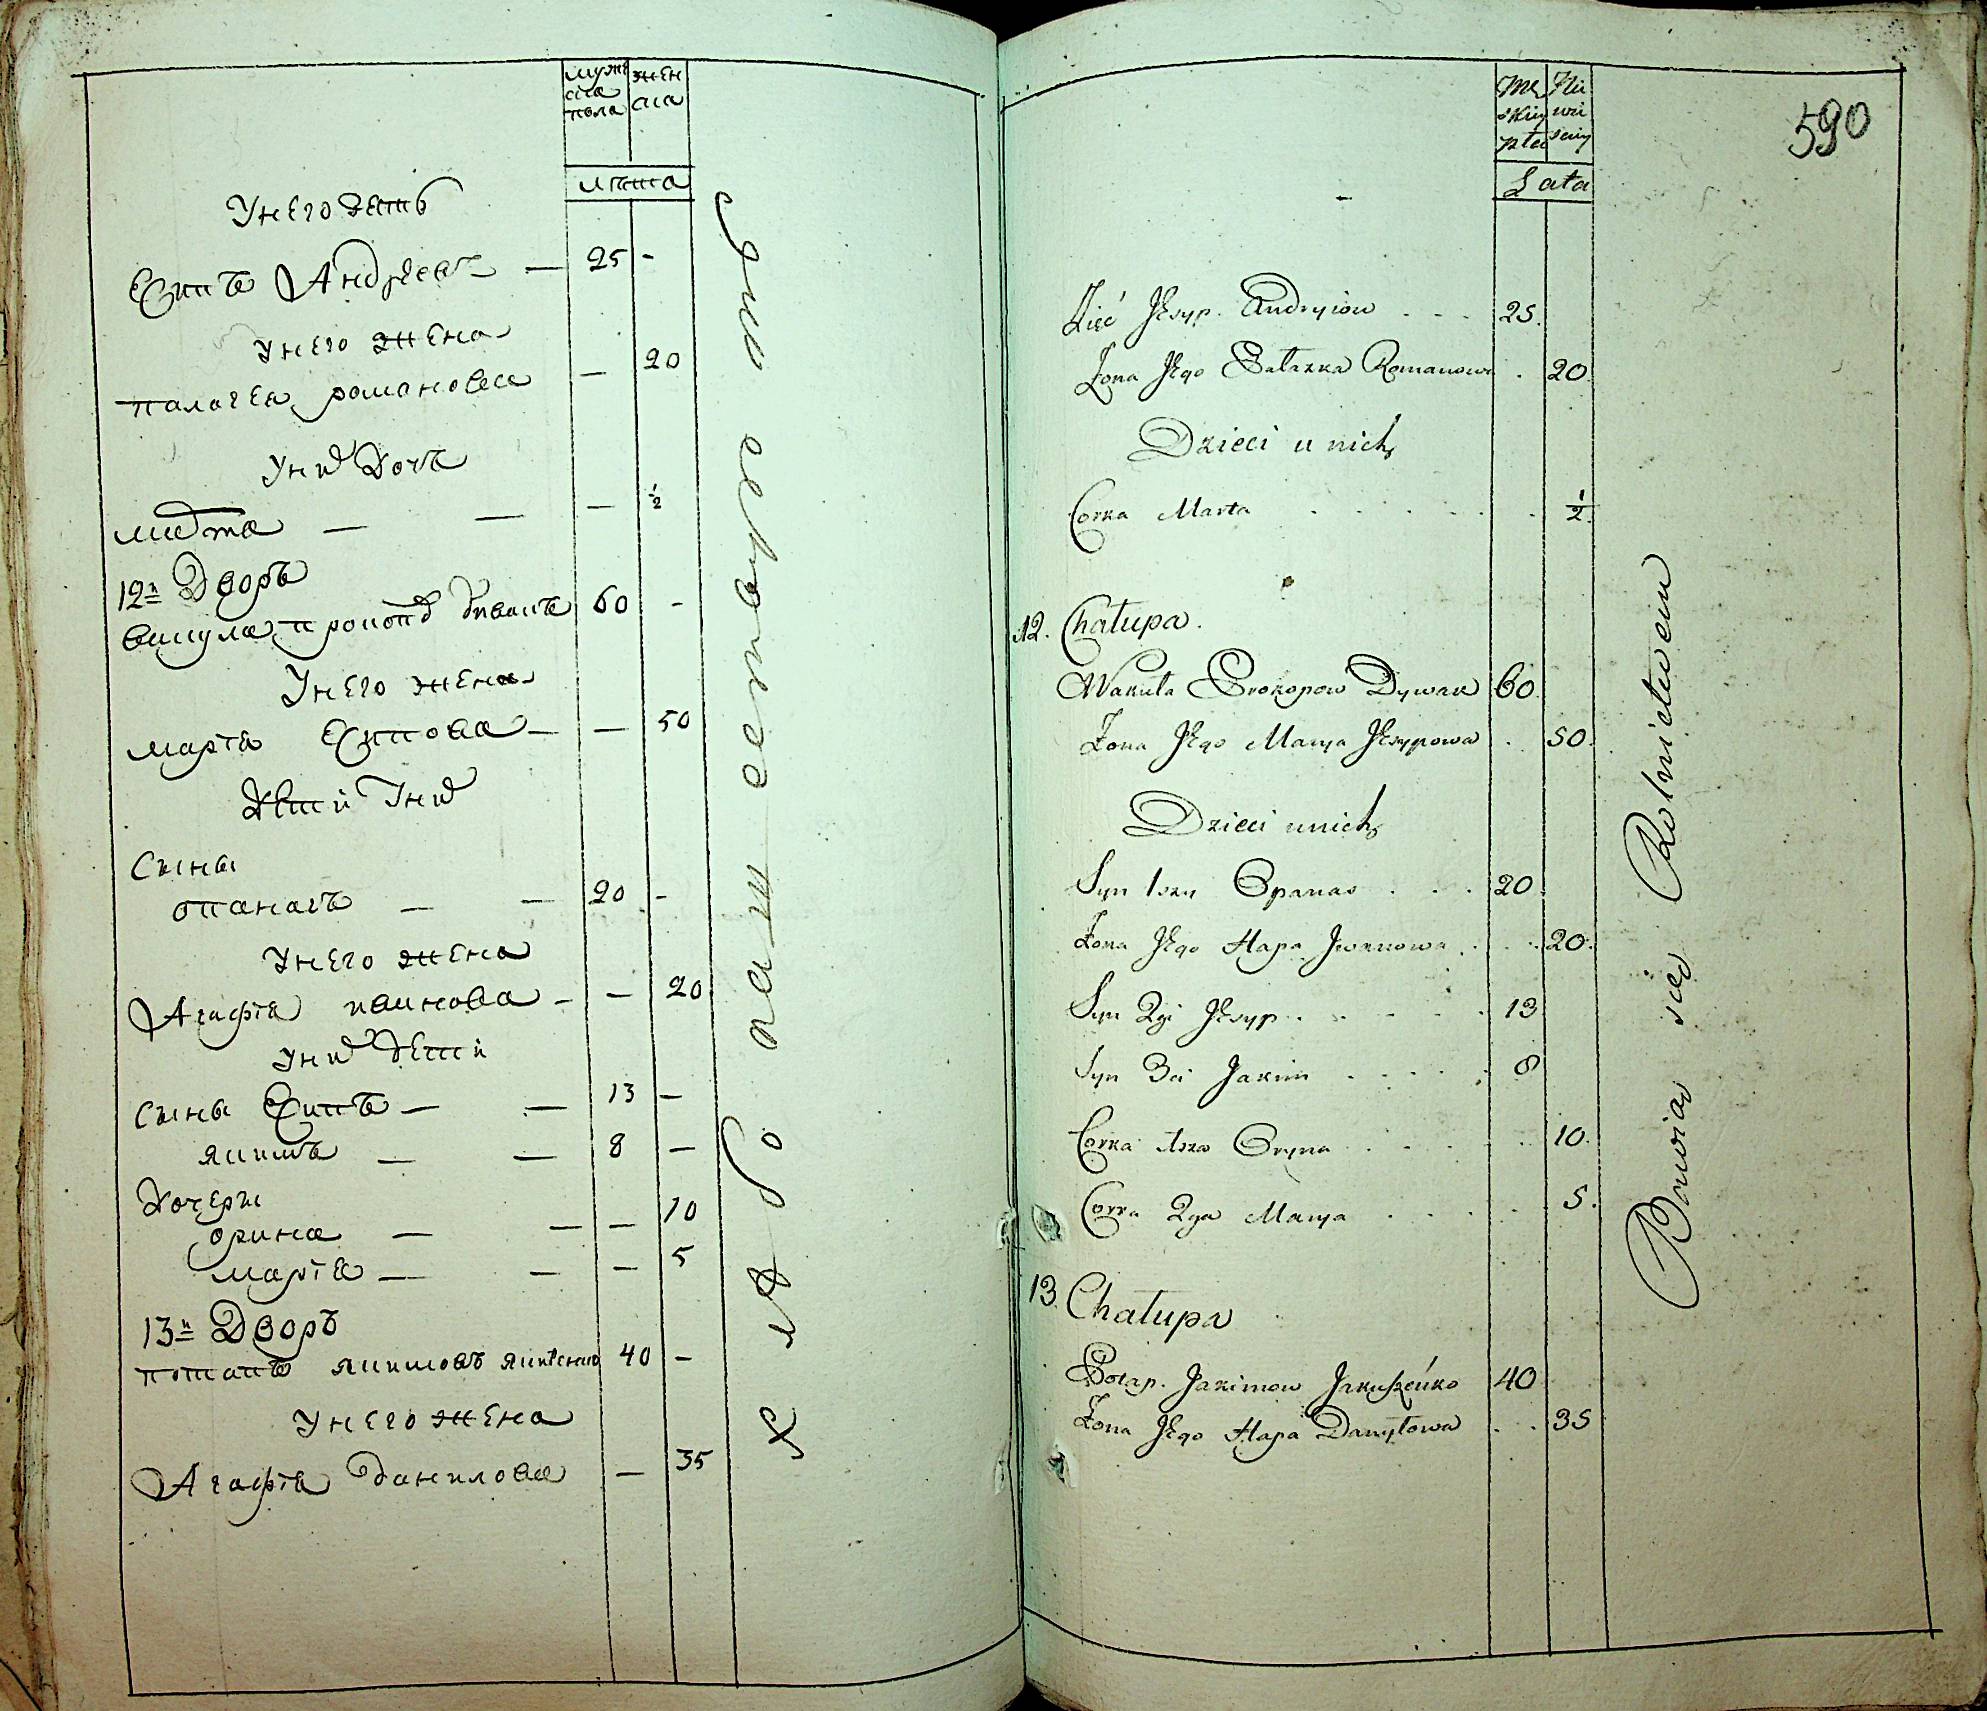 мужеска пола
женска
лѣта
У него зять
Есипъ Андреевъ — 25 -
У него жена
палагея романовна — 20
У них дочь
марта — — — 1/2
12й Дворъ
вакула прокопов диванъ 60 -
У него жена
марта Есипова — — 50
Дети У них
Сыны
опанасъ — — 20 -
У него жена
Агафия иванова - — 20
У них дети
Сыны Есипъ — — 13 —
якимъ — — 8 —
Дочери
орина — — — 10
марта — — — 5
13й Дворъ
потапъ якимовъ 40 -
У него жена
Агафия данилова — 35
хлебопашествомъ
590
Męskiey płci
Niewieściey
Lata
Zięć Jesyp Andryiow . . . 25.
Żona Jego Pałazka Romanowa . 20.
Dzieci u nich
Corka Marta . . . . . . 1/2.
12. Chałupa.
Wakuła Prokopow Dywan 60.
Żona Jego Marya Jesypowa . 50.
Dzieci u nich
Syn 1szy Opanas . . . 20.
Żona Jego Hapa Jwanowa . . . 20.
Syn 2gi Jesyp . . . . . 13
Syn 3ci Jakim . . . . . 8
Corka 1sza Oryna . . . . . 10.
Corka 2ga Marya . . . . . 5.
13. Chałupa
Potap Jakimow Jakuszeńko 40
Żona Jego Hapa Danyłowa . . 35
Bawią się Rolnictwem